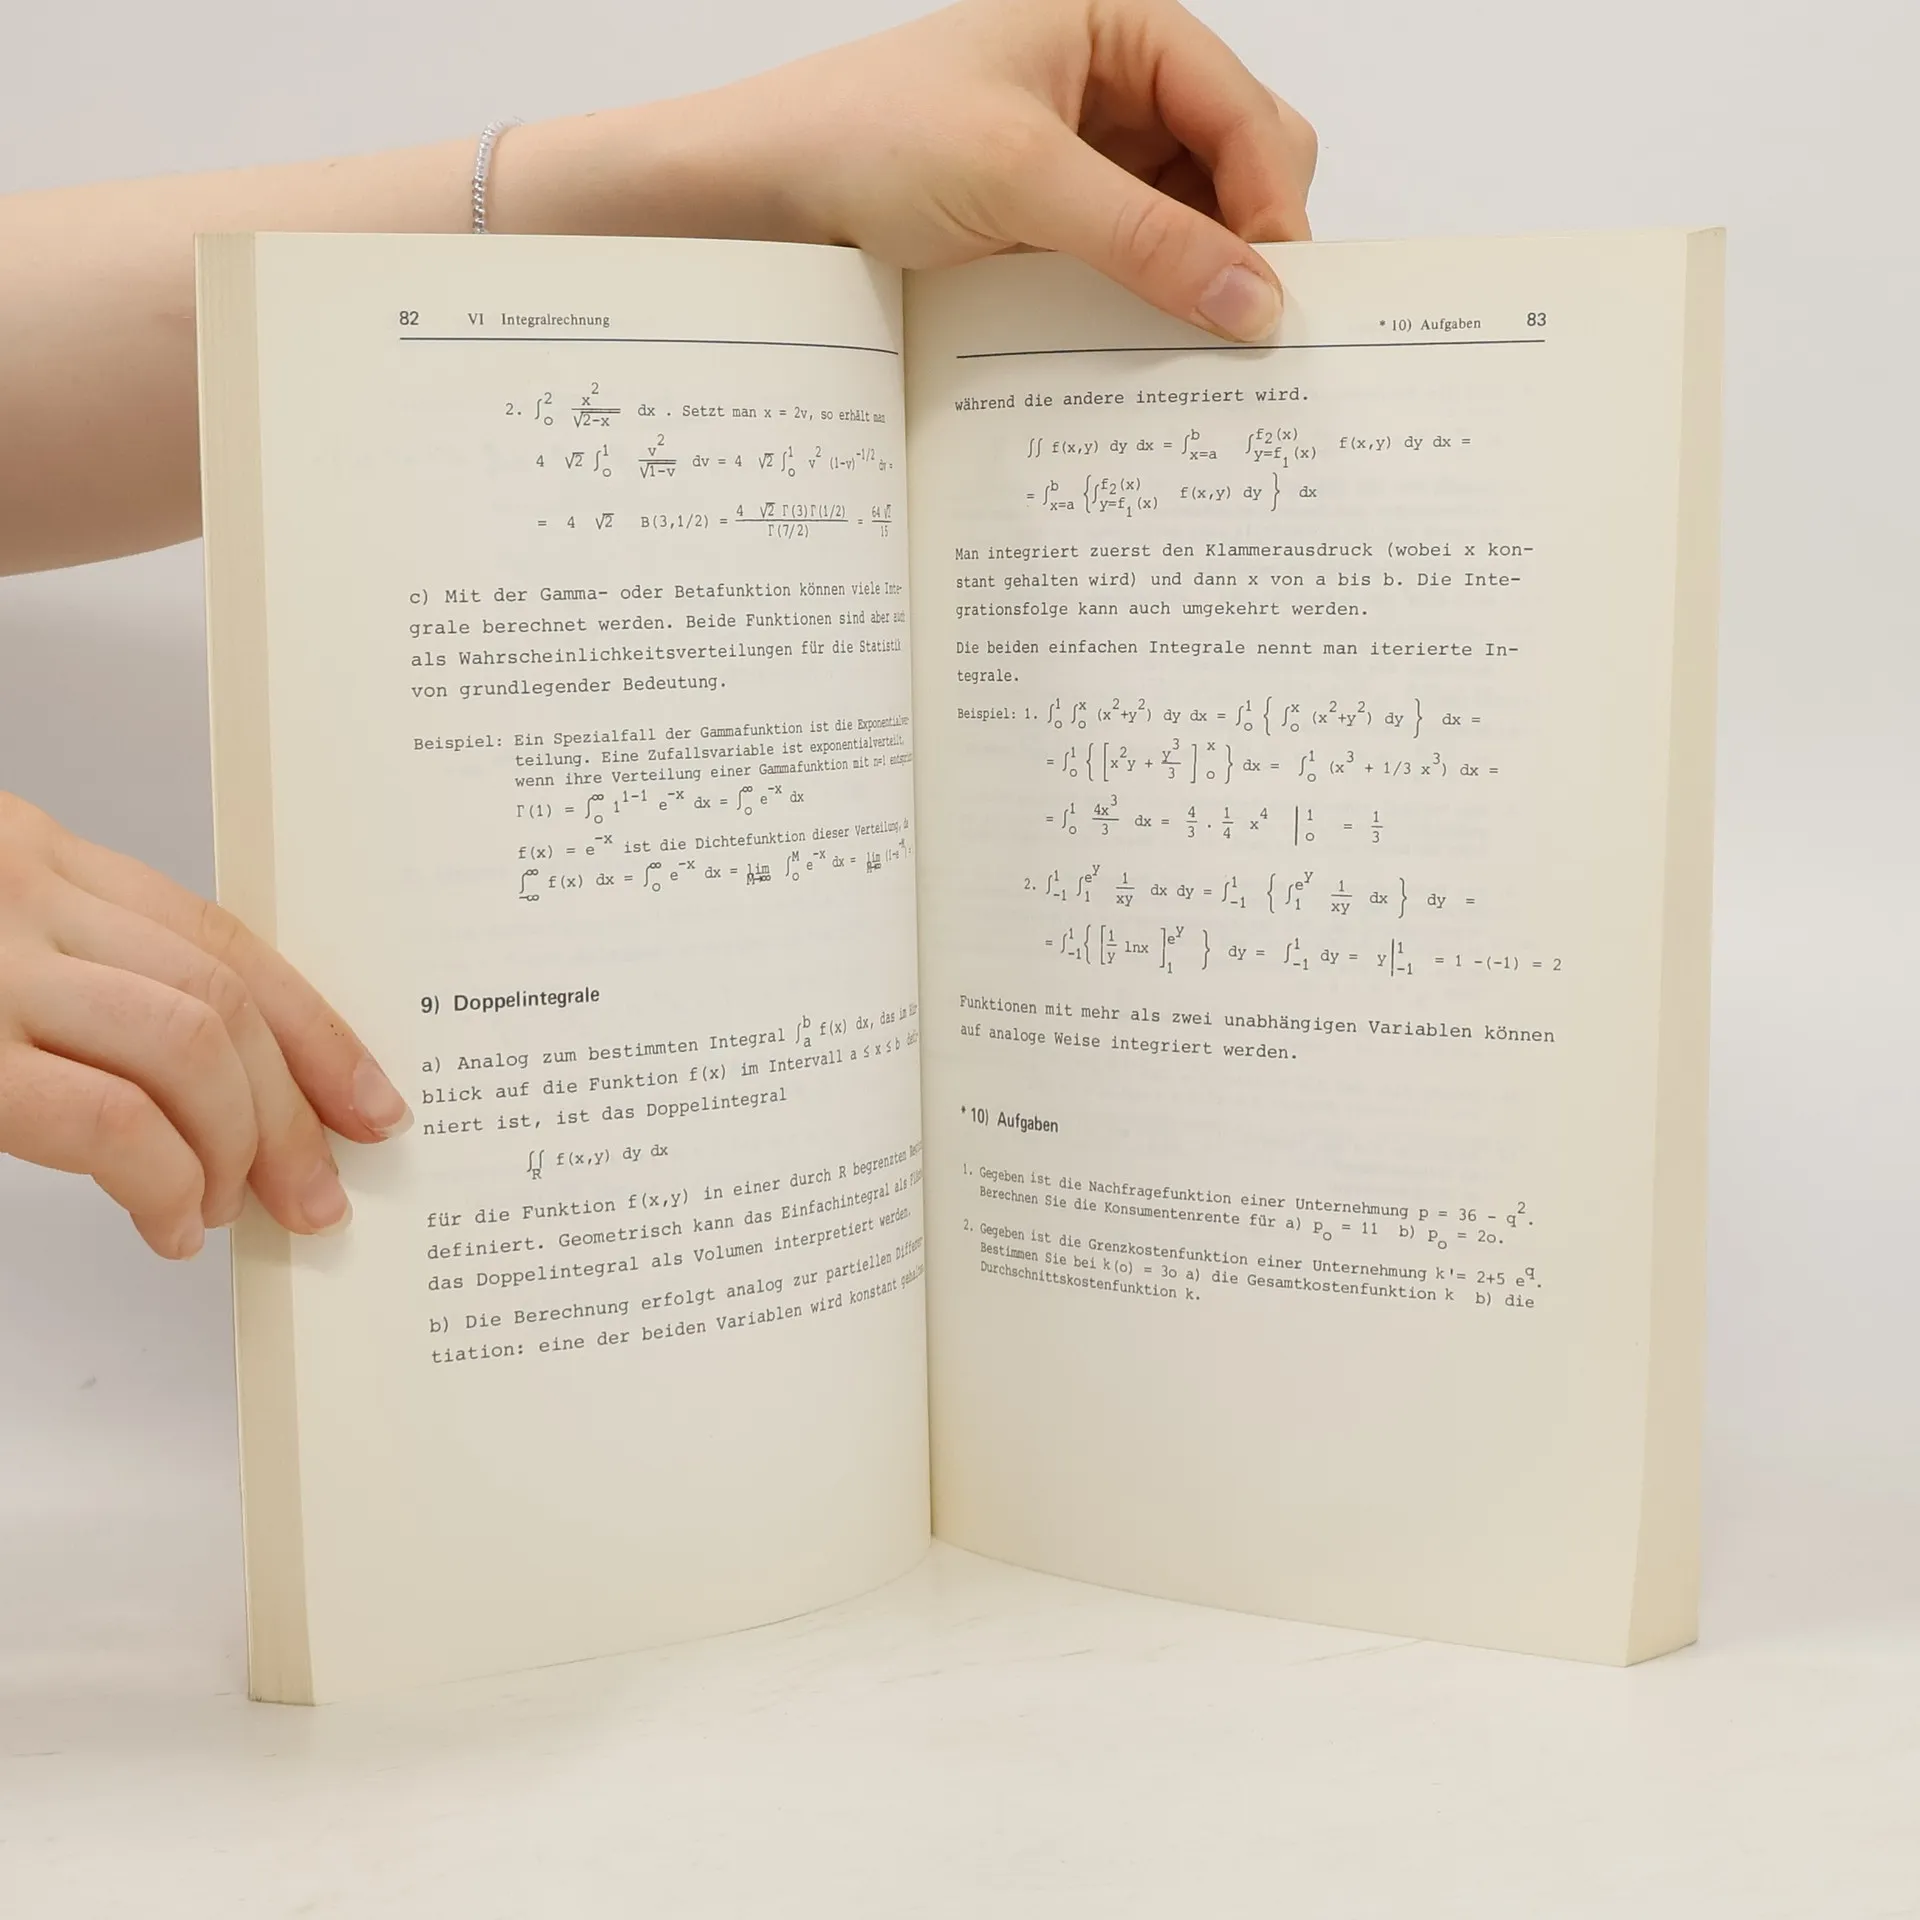 82 VI Integralrechnung
2. ∫₀² x²/√2-x dx . Setzt man x = 2v, so erhält man
4 √2 ∫₀¹ v²/√1-v dv = 4 √2 ∫₀¹ v² (1-v)^-1/2 dv =
= 4 √2 B(3,1/2) = 4 √2 Γ(3)Γ(1/2)/Γ(7/2) = 64 √2/15
c) Mit der Gamma- oder Betafunktion können viele Inte-
grale berechnet werden. Beide Funktionen sind aber auch
als Wahrscheinlichkeitsverteilungen für die Statistik
von grundlegender Bedeutung.
Beispiel: Ein Spezialfall der Gammafunktion ist die Exponentialver-
teilung. Eine Zufallsvariable ist exponentialverteilt,
wenn ihre Verteilung einer Gammafunktion mit n=1
Γ(1) = ∫₀^∞ 1^1-1 e^-x dx = ∫₀^∞ e^-x dx
f(x) = e^-x ist die Dichtefunktion dieser Verteilung, da
∫_-∞^∞ f(x) dx = ∫₀^∞ e^-x dx = lim M→∞ ∫₀^M e^-x dx = lim
9) Doppelintegrale
a) Analog zum bestimmten Integral ∫ₐᵇ f(x) dx, das in
blick auf die Funktion f(x) im Intervall a ≤ x ≤ b defi-
niert ist, ist das Doppelintegral
∬_R f(x,y) dy dx
für die Funktion f(x,y) in einer durch R begrenzten
definiert. Geometrisch kann das Einfachintegral als
das Doppelintegral als Volumen interpretiert werden.
b) Die Berechnung erfolgt analog zur partiellen Differen-
tiation: eine der beiden Variablen wird konstant gehalten
* 10) Aufgaben 83
während die andere integriert wird.
∬ f(x,y) dy dx = ∫_x=a^b ∫_y=f₁(x)^f₂(x) f(x,y) dy dx =
= ∫_x=a^b {∫_y=f₁(x)^f₂(x) f(x,y) dy } dx
Man integriert zuerst den Klammerausdruck (wobei x kon-
stant gehalten wird) und dann x von a bis b. Die Inte-
grationsfolge kann auch umgekehrt werden.
Die beiden einfachen Integrale nennt man iterierte In-
tegrale.
Beispiel: 1. ∫₀¹ ∫₀ˣ (x²+y²) dy dx = ∫₀¹ { ∫₀ˣ (x²+y²) dy } dx =
= ∫₀¹ { [x²y + y³/3]₀ˣ } dx = ∫₀¹ (x³ + 1/3 x³) dx =
= ∫₀¹ 4x³/3 dx = 4/3 . 1/4 x⁴ |₀¹ = 1/3
2. ∫₋₁¹ ∫₁^e^y 1/xy dx dy = ∫₋₁¹ { ∫₁^e^y 1/xy dx } dy =
= ∫₋₁¹ { [1/y lnx]₁^e^y } dy = ∫₋₁¹ dy = y|₋₁¹ = 1 -(-1) = 2
Funktionen mit mehr als zwei unabhängigen Variablen können
auf analoge Weise integriert werden.
* 10) Aufgaben
1. Gegeben ist die Nachfragefunktion einer Unternehmung p = 36 - q².
Berechnen Sie die Konsumentenrente für a) p₀ = 11 b) p₀ = 2o.
2. Gegeben ist die Grenzkostenfunktion einer Unternehmung k'= 2+5 e^q.
Bestimmen Sie bei k(o) = 3o a) die Gesamtkostenfunktion k b) die
Durchschnittskostenfunktion k.